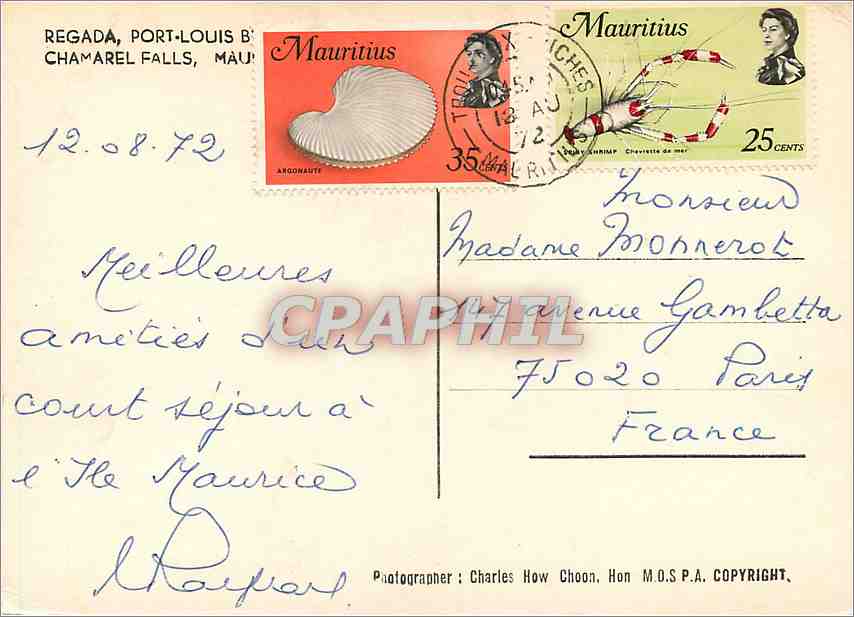 REGADA, PORT-LOUIS B
CHAMAREL FALLS, MAU
Mauritius
ARGONAUTE
35 CENTS
Mauritius
SPINY SHRIMP Chevrette de mer
25 CENTS
TROU BICHES
18 AU
72
MAURITIUS
12.08.72
Meilleures
amitiés d'un
court séjour à
l'Ile Maurice
Monsieur
Madame Monnerot
147 avenue Gambetta
75020 Paris
France
CPAPHIL
Photographer : Charles How Choon, Hon M.O.S P.A. COPYRIGHT.